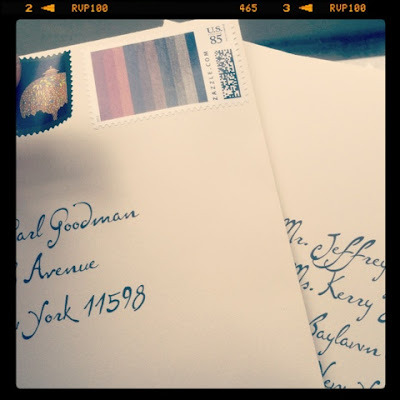 2 ◄ RVP100 465 3 ◄ RVP100
U.S.
85
ZAZZLE.COM
arl Goodman
Avenue
York 11598
Mr. Jeffrey
Ms. Kerry
Baylawn
New